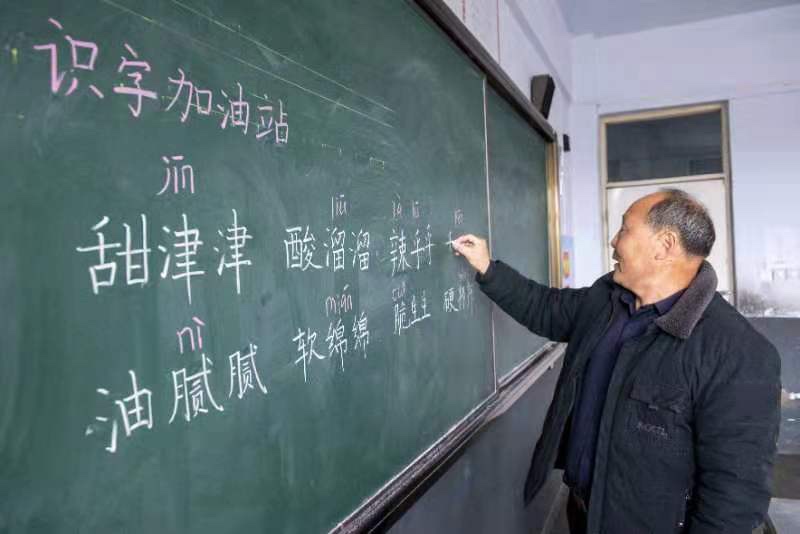 识字加油站
jīn liū là
甜津津 酸溜溜 辣乎乎
nì mián cuì
油腻腻 软绵绵 脆生生 硬